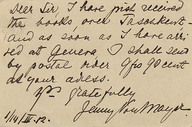 Dear Sir I have just received
the books over Taschkent
and as soon as I have arri
ved at Geneva, I shall send
by postal order 9 fr 90 cent
as your adress.
Yrs gratefully
Jenny Von Mayer